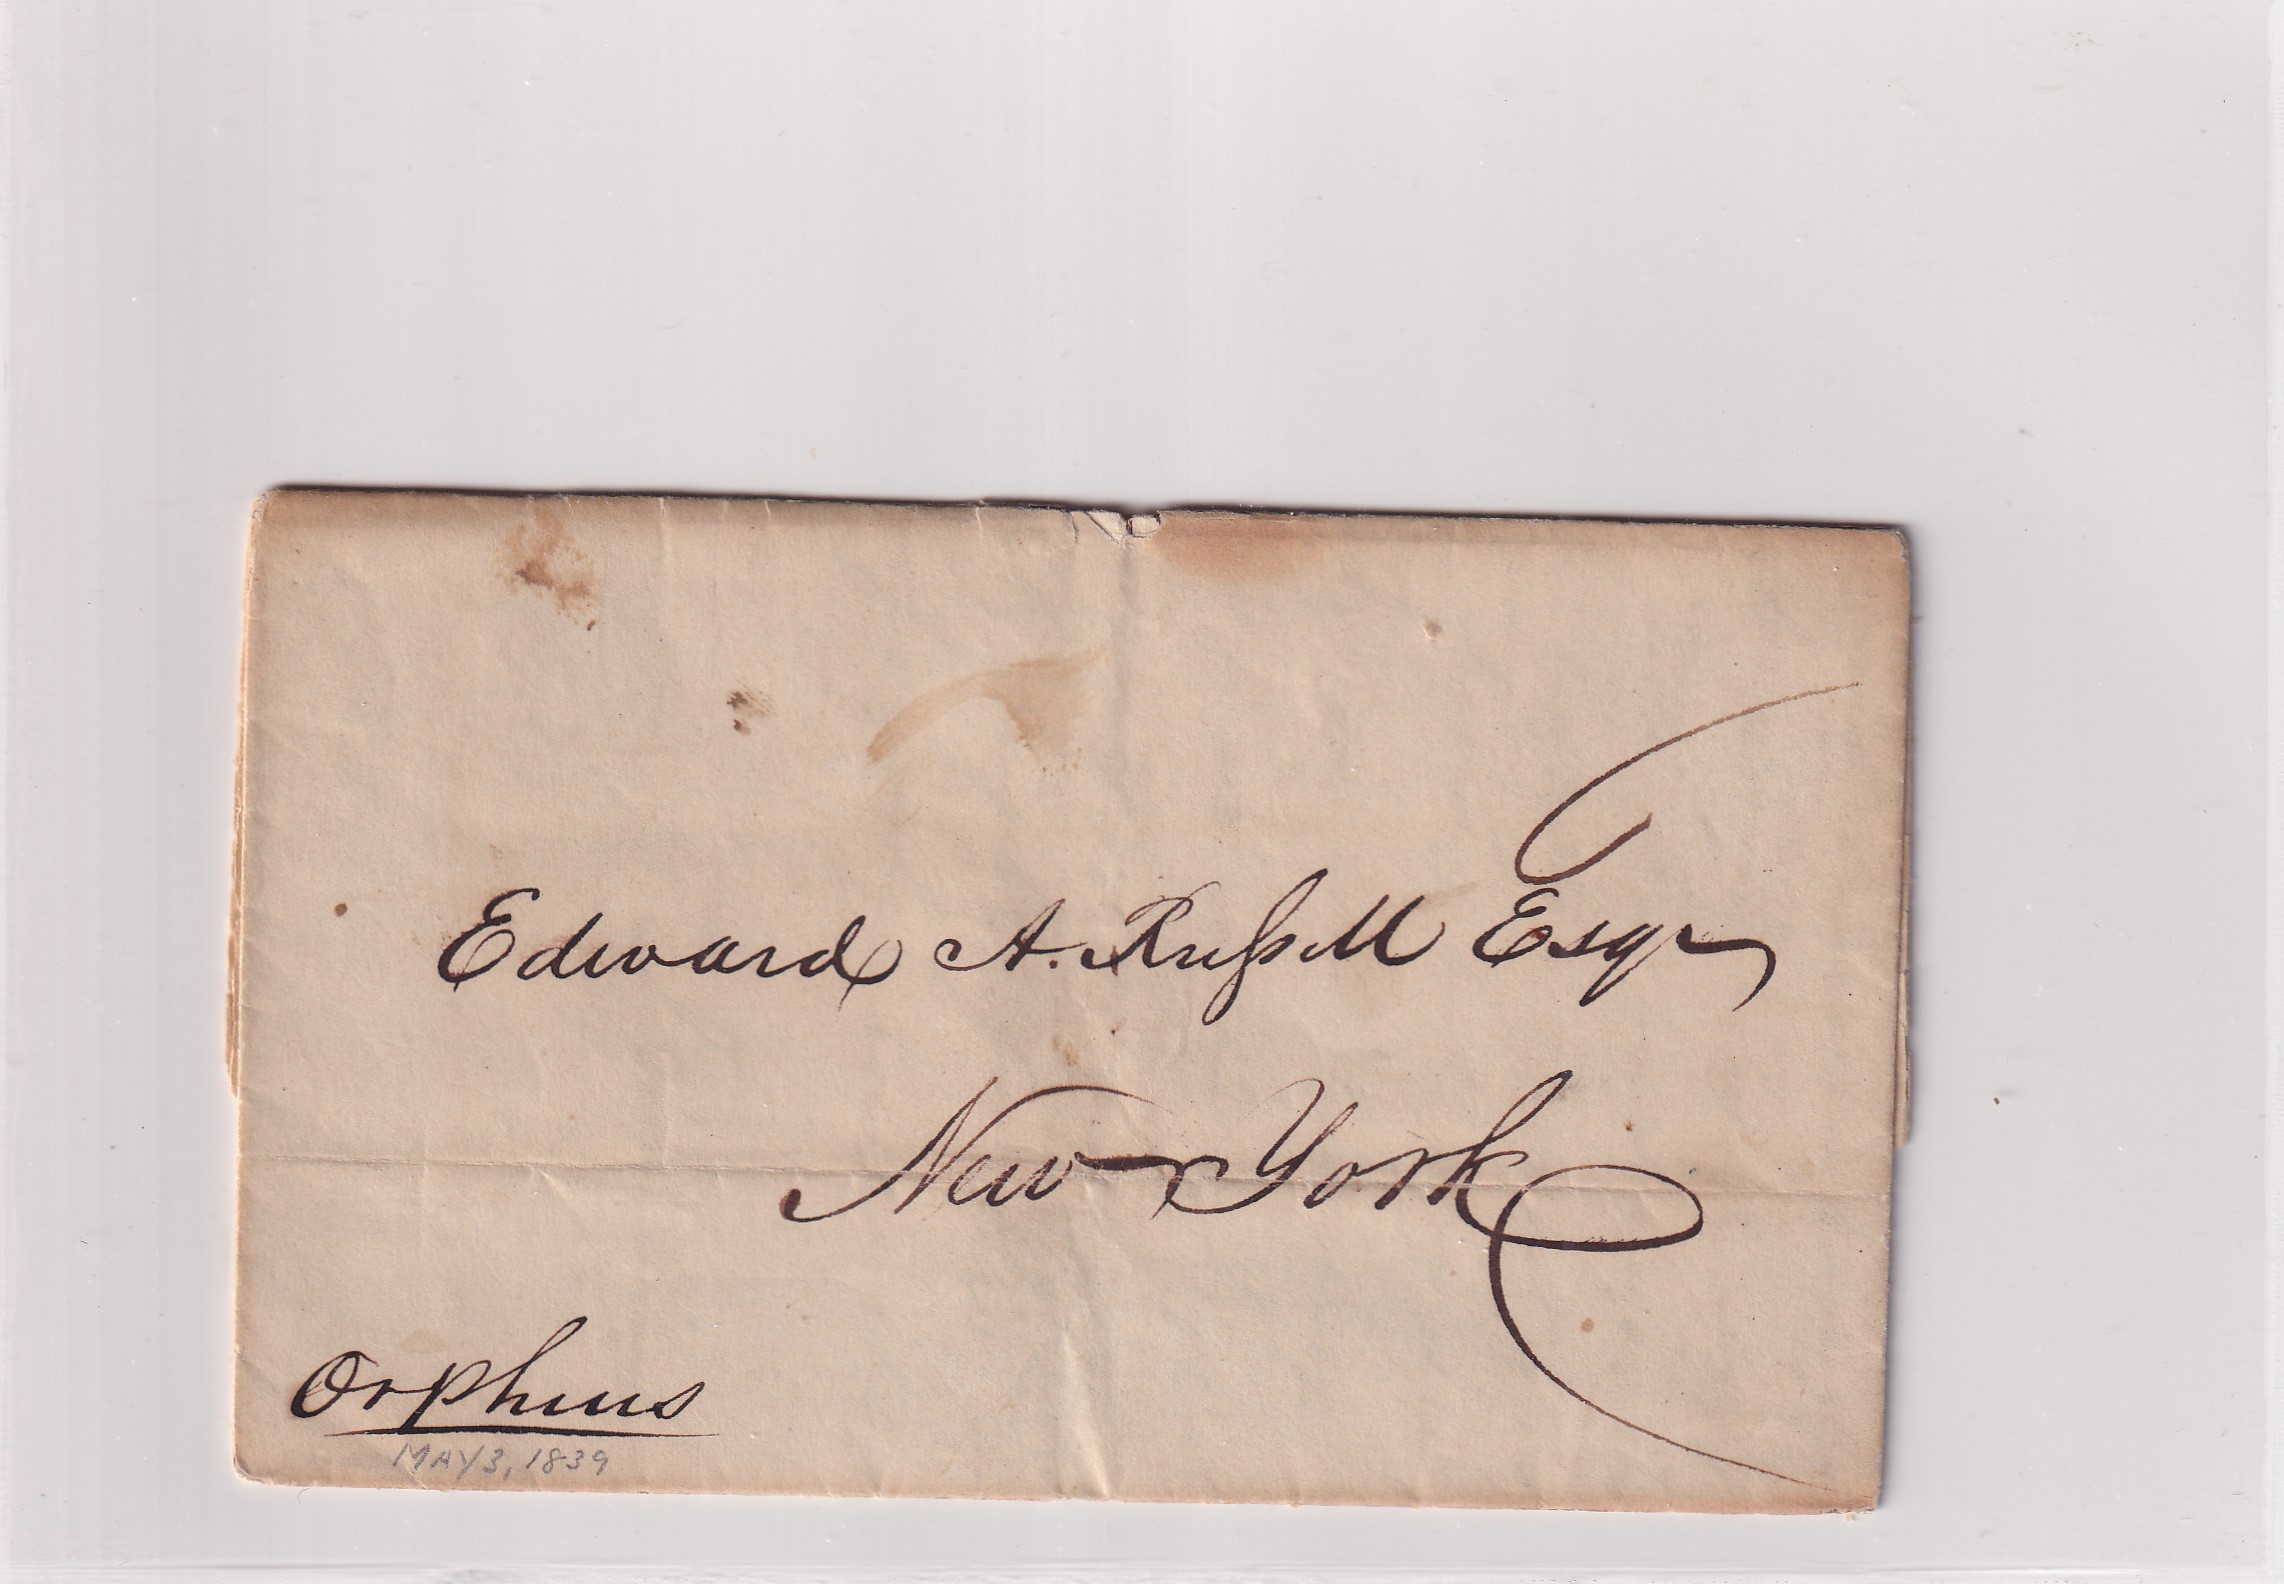 Edward A. Russell Esqr
New York
Orpheus
MAY 3, 1839